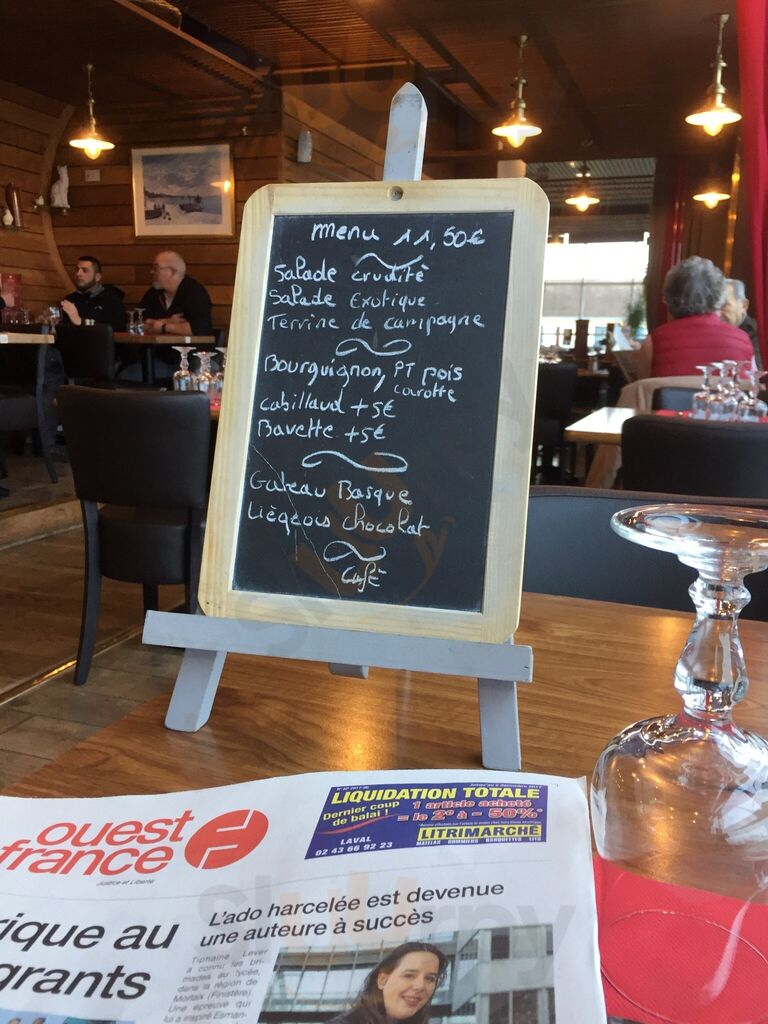 menu 11,50€
Salade crudité
Salade Exotique
Terrine de campagne
Bourguignon, PT pois
carotte
Cabillaud +5€
Bavette +5€
Gateau Basque
Liègeois chocolat
Café
ouest
france
Justice et Liberté
LIQUIDATION TOTALE
Dernier coup
de balai !
1 article acheté
= le 2e à - 50%*
LAVAL
02 43 66 92 23
LITRIMARCHÉ
MATELAS SOMMIERS BANQUETTES LITS
rique au
grants
L'ado harcelée est devenue
une auteure à succès
Tiphaine Lever
a connu les bri-
mades au lycée,
dans la région de
Morlaix (Finistère).
Une épreuve qui
lui a inspiré Esman-